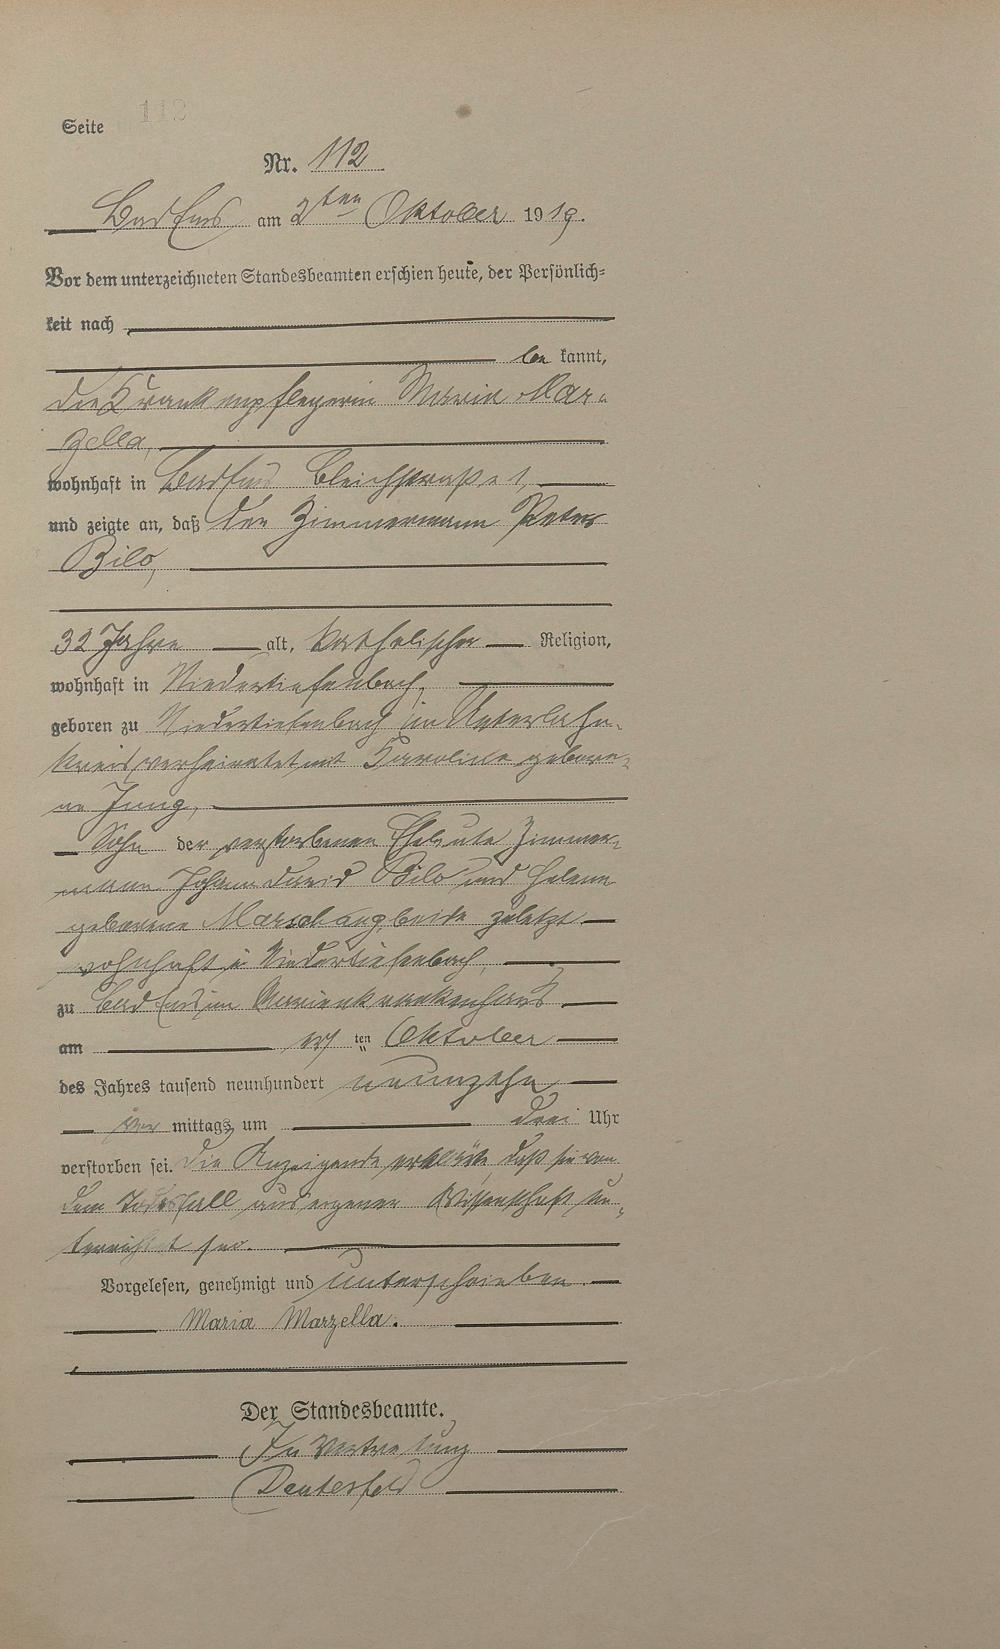 Seite 112
Nr. 112
Bad Ems am 2ten Oktober 1919.
Vor dem unterzeichneten Standesbeamten erschien heute, der Persönlich-
keit nach
be kannt,
die Krankenpflegerin Maria Mar-
zella,
wohnhaft in Bad Ems Bleichstraße 1,
und zeigte an, daß der Zimmermann Peter
Bilo,
32 Jahre alt, katholischer Religion,
wohnhaft in Niedertiefenbach,
geboren zu Niedertiefenbach im Unterlahn-
kreis, verheiratet mit Karoline gebore-
ne Jung,
Sohn der verstorbenen Eheleute Zimmer-
mann Johann David Bilo und Helene
geborene beide zuletzt
wohnhaft in Niedertiefenbach,
zu Bad Ems im Marienkrankenhaus
am ten Oktober
des Jahres tausend neunhundert neunzehn
vor mittags um drei Uhr
verstorben sei. Die Anzeigende erklärte, daß sie von
dem Todesfall aus eigener Wissenschaft un-
terrichtet sei.
Vorgelesen, genehmigt und unterschrieben
Maria Marzella.
Der Standesbeamte.
In Vertretung